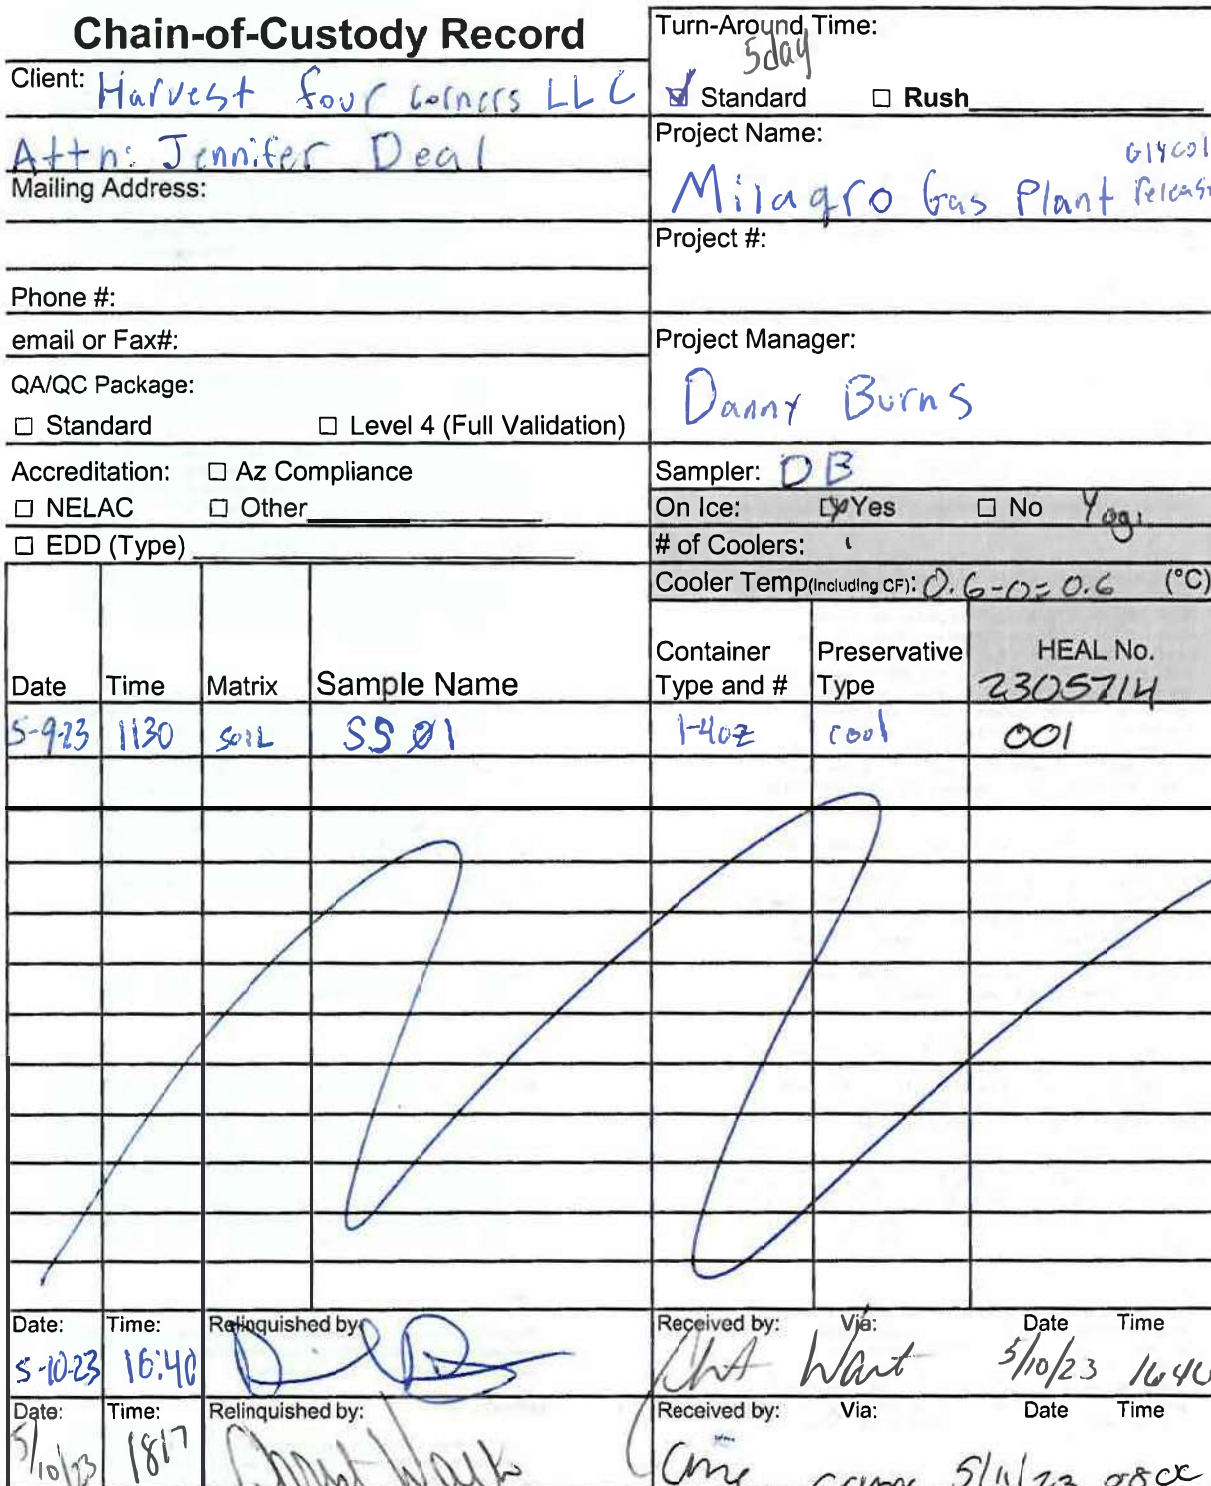 Chain-of-Custody Record
Client: Harvest four corners LLC
Attn: Jennifer Deal
Mailing Address:
Phone #:
email or Fax#:
QA/QC Package:
☐ Standard ☐ Level 4 (Full Validation)
Accreditation: ☐ Az Compliance
☐ NELAC ☐ Other
☐ EDD (Type)
Turn-Around Time:
5day
☑ Standard ☐ Rush
Project Name:
Milagro Gas Plant Glycol
Project #:
Project Manager:
Danny Burns
Sampler: DB
On Ice: ☑ Yes ☐ No Yogi
# of Coolers: 1
Cooler Temp(Including CF): 0.6-0=0.6 (°C)
Date Time Matrix Sample Name Container Type and # Preservative Type HEAL No. 2305714
5-9-23 1130 SOIL SS Ø1 1-4oz cool 001
Date: Time: Relinquished by: Received by: Via: Date Time
5-10-23 16:40 5/10/23 1640
Date: Time: Relinquished by: Received by: Via: Date Time
5/10/23 1817 5/11/23